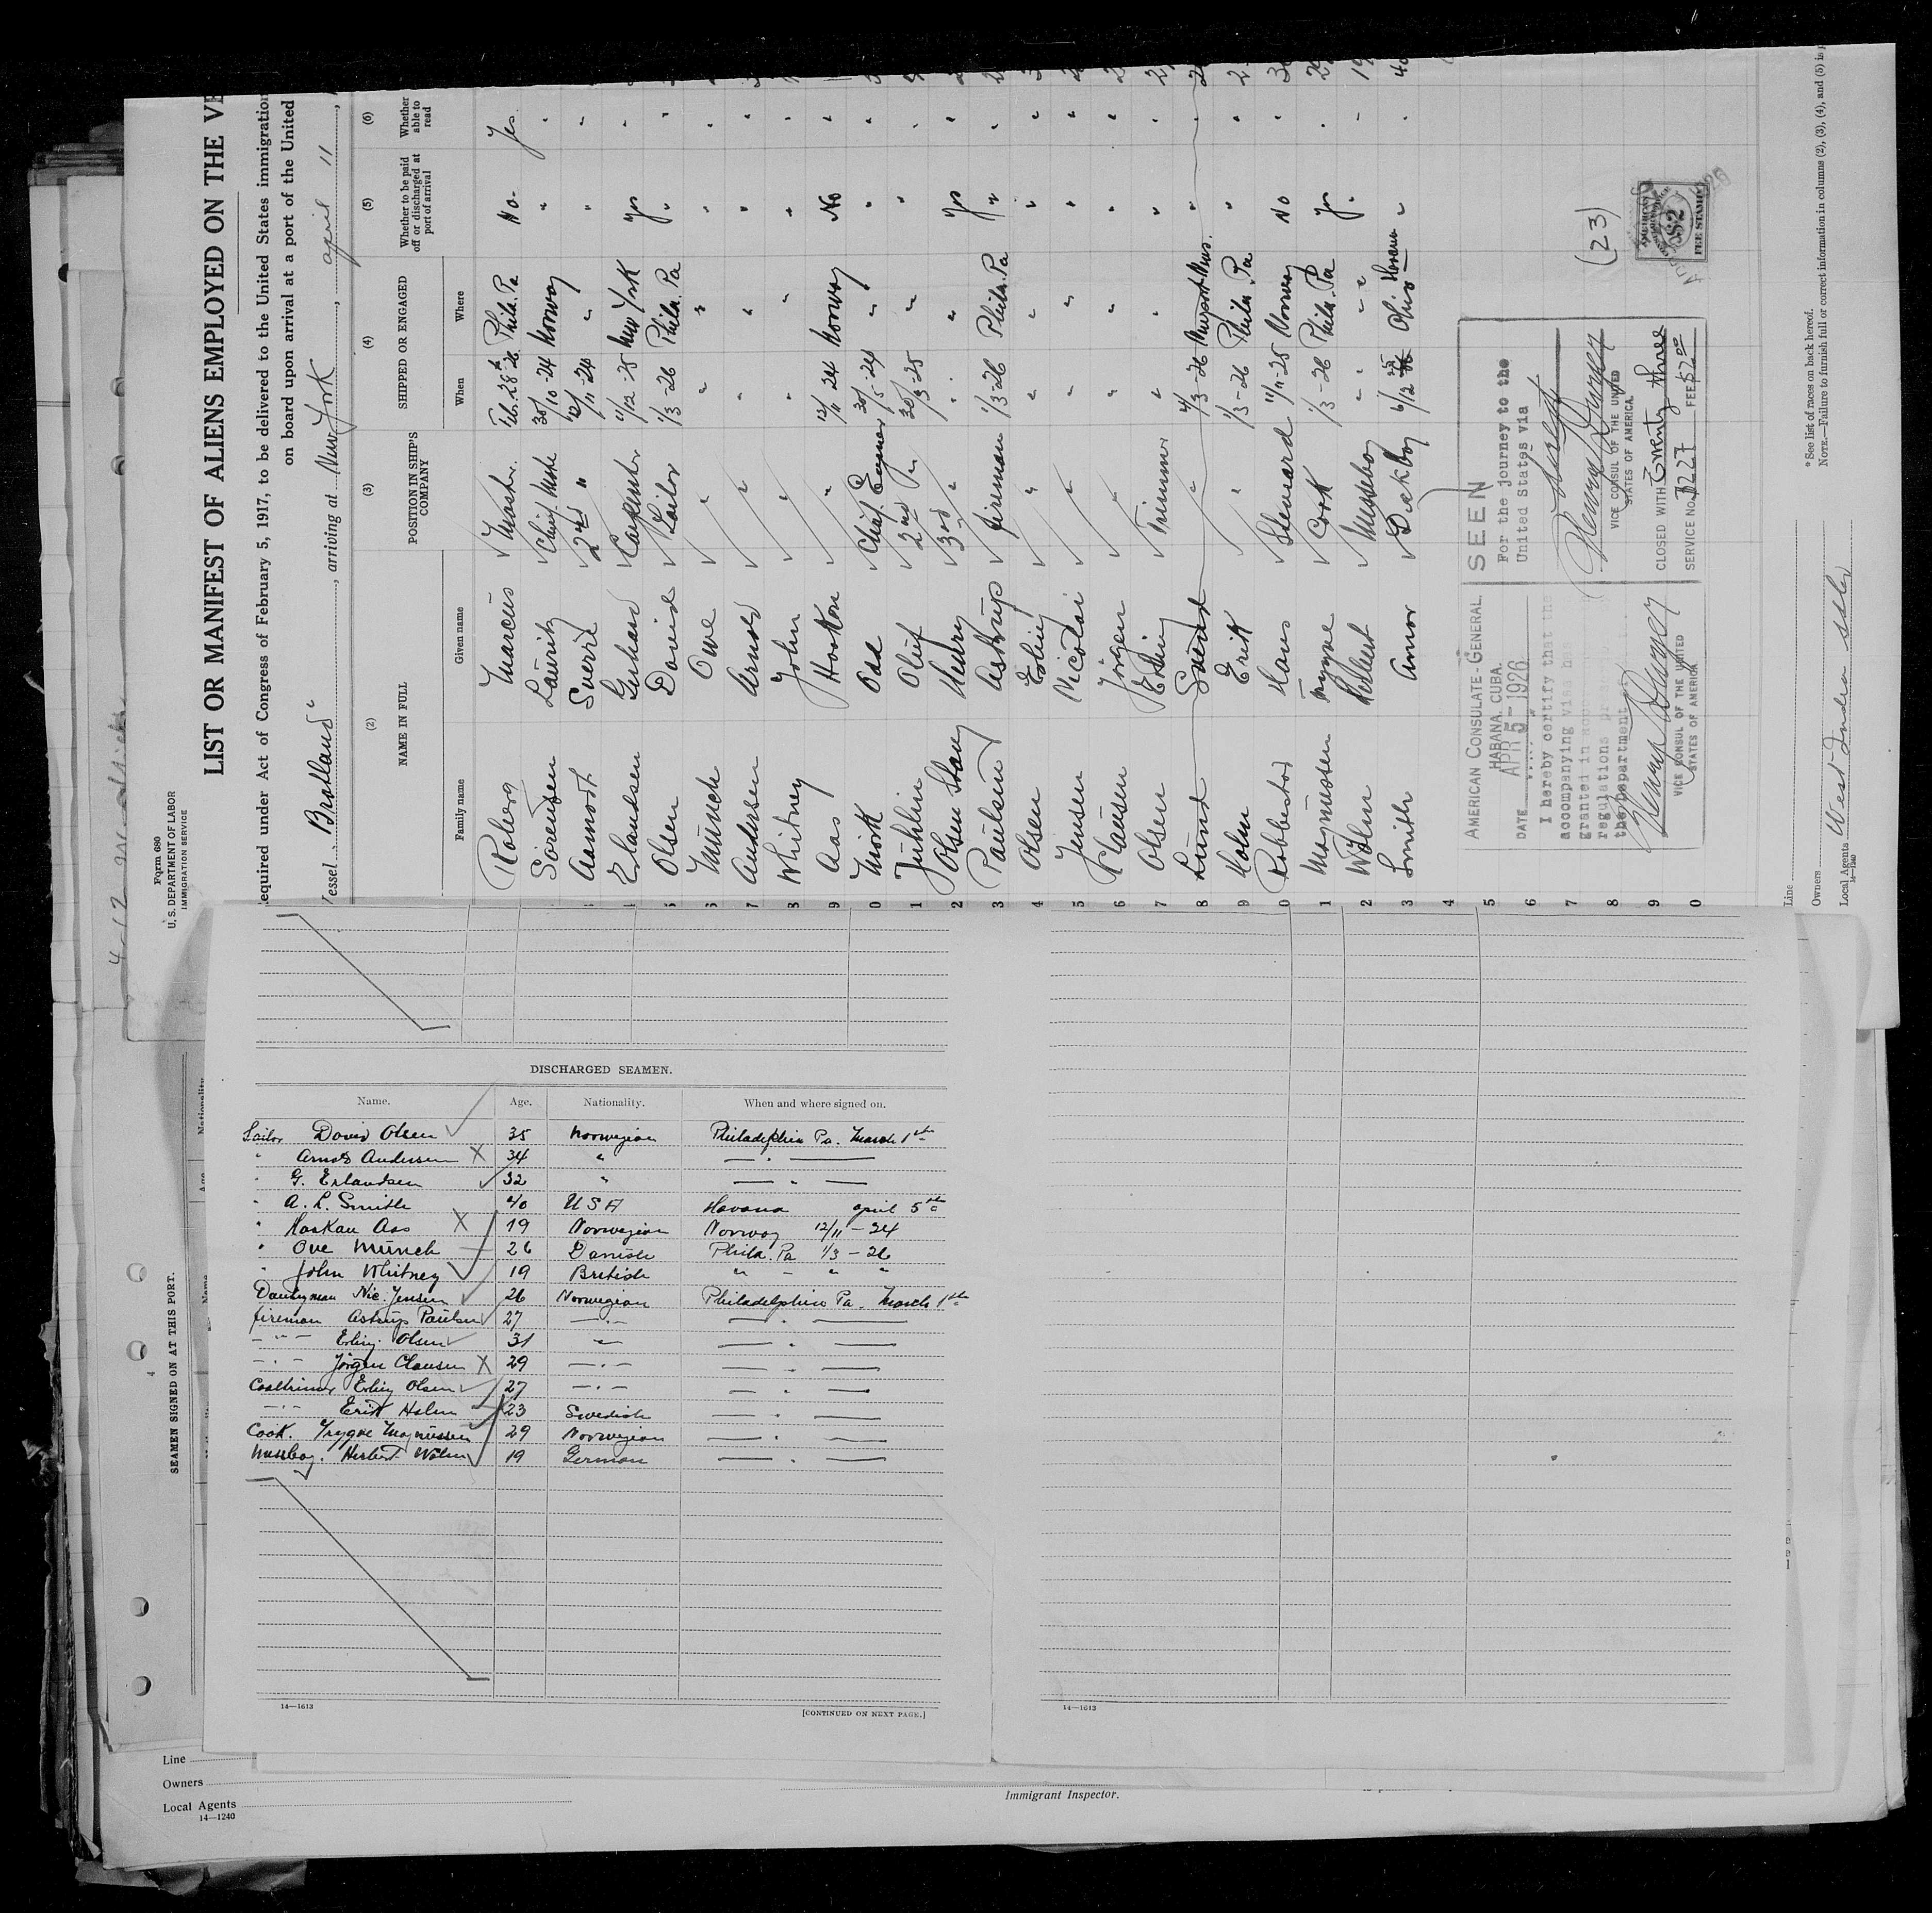 4-12 M.
Form 680
U. S. DEPARTMENT OF LABOR
IMMIGRATION SERVICE
LIST OR MANIFEST OF ALIENS EMPLOYED ON THE VE
equired under Act of Congress of February 5, 1917, to be delivered to the United States immigration
on board upon arrival at a port of the United
Vessel Bratland", arriving at New York, april 11,
(2) (3) (4) (5) (6)
NAME IN FULL POSITION IN SHIP'S COMPANY SHIPPED OR ENGAGED Whether to be paid off or discharged at port of arrival Whether able to read
Family name Given name When Where
Roberg Marcus Master Feb. 28th-26 Phila. Pa No- Yes
Sörensen Lauritz Chief Mate 30/10-24 Norway " "
Aamodt Sverre 2nd " 12/11-24 " " "
Erlandsen Gerhard Carpenter 11/12-25 New York Yes "
5 Olsen David Sailor 1/3-26 Phila. Pa " "
6 Münch Owe " " " " "
7 Andersen Arnold " " " " "
8 Whitney John " " " " "
9 Aas Haakon " 12/11 24 Norway No "
0 Mörk Odd Chief Engineer 30/5-24 " " "
1 Juhlin Oluf 2nd " 30/3-25 " " "
2 Olsen Stavey Henry 3rd " " " Yes "
3 Paulsen Astrup fireman 1/3-26 Phila. Pa " "
4 Olsen Erling " " " " "
5 Jensen Nicolai " " " " "
6 Clausen Jörgen " " " "
7 Olsen Erling Trimmer " " " "
8 Lund Svend " 4/3-26 Newport News. " "
9 Holm Erik " 1/3-26 Phila. Pa " "
0 Robberstad Hans Steward 11/11-25 Norway No "
1 Magnussen Trygve Cook 1/3-26 Phila. Pa Yes "
2 Wölm Herbert Messboy " " " " " "
3 Smith Amor Deckboy 6/12 25 Ohio Havana " "
4
5
6
7
8
9
0
AMERICAN CONSULATE-GENERAL,
HABANA, CUBA.
DATE APR 5 - 1926
I hereby certify that the
accompanying visa has
granted in
regulations
the Department
VICE CONSUL OF THE UNITED
STATES OF AMERICA
SEEN
For the journey to the
United States via
direct
VICE CONSUL OF THE UNITED
STATES OF AMERICA.
CLOSED WITH Twenty three
SERVICE No. 7227 FEE $2.00
(23)
AMERICAN
$2
FEE STAMP
1926
Line
Owners
Local Agents West Indies
14-1240
* See list of races on back hereof.
NOTE.—Failure to furnish full or correct information in columns (2), (3), (4), and (5) is
DISCHARGED SEAMEN.
Name. Age. Nationality. When and where signed on.
Sailor David Olsen 35 Norwegian Philadelphia Pa. March 1st
" Arnold Andersen X 34 " — " —
" G. Erlandsen 32 " — " —
" A. L. Smith 40 USA Havana april 5th
" Haakan Aas X 19 Norwegian Norway 12/11-24
" Ove Münch 26 Danish Phila. Pa 1/3-26
" John Whitney 19 British " - " "
Donkeyman Nic. Jensen 26 Norwegian Philadelphia Pa. March 1st
fireman Astrup Paulsen 27 — " — — " —
— " — Erling Olsen 31 " — " —
— " — Jörgen Clausen X 29 — " — — " —
Coaltrimer Erling Olsen 27 — " — — " —
— " — Erik Holm 23 Swedish — " —
Cook. Trygve Magnussen 29 Norwegian — " —
Messboy. Herbert Wölm 19 German — " —
14—1613 [CONTINUED ON NEXT PAGE.] 14—1613
SEAMEN SIGNED ON AT THIS PORT.
4
Name
Age
Nationality
Line
Owners
Local Agents
14—1240
Immigrant Inspector.